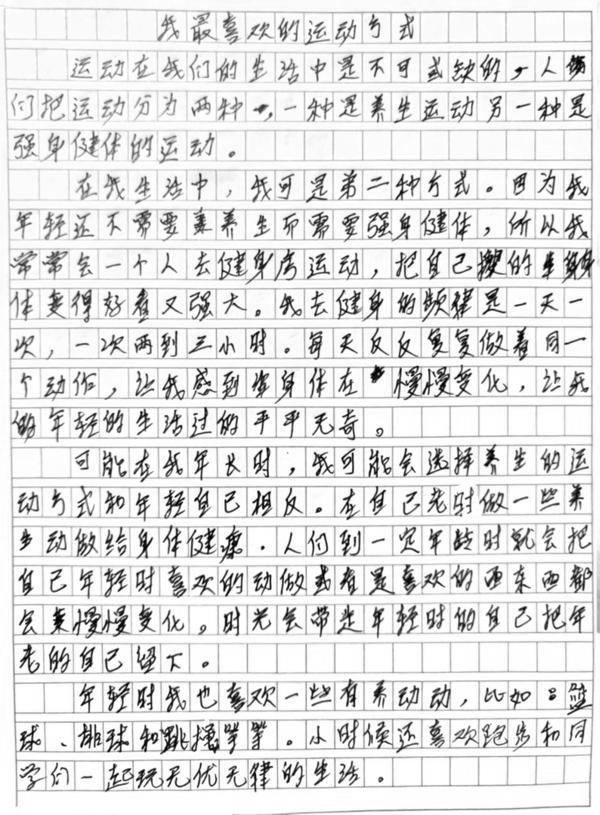 我最喜欢的运动方式
运动在我们的生活中是不可或缺的，人
们把运动分为两种，一种是养生运动另一种是
强身健体的运动。
在我生活中，我可是第二种方式。因为我
年轻还不需要养生而需要强身健体，所以我
常常会一个人去健身房运动，把自己的身
体变得好看又强大。我去健身的频律是一天一
次，一次两到三小时。每天反反复复做着同一
个动作，让我感到我身体在慢慢变化，让我
的年轻的生活过的平平无奇。
可能在我年长时，我可能会选择养生的运
动方式和年轻自己相反。在自己老时做一些养
生动做给身体健康．人们到一定年龄时就会把
自己年轻时喜欢的动做或者是喜欢的西东西都
会来慢慢变化。时光会带走年轻时的自己把年
老的自己留下。
年轻时我也喜欢一些有养动动，比如：篮
球、排球和跳操等等。小时候还喜欢跑步和同
学们一起玩无忧无律的生活。